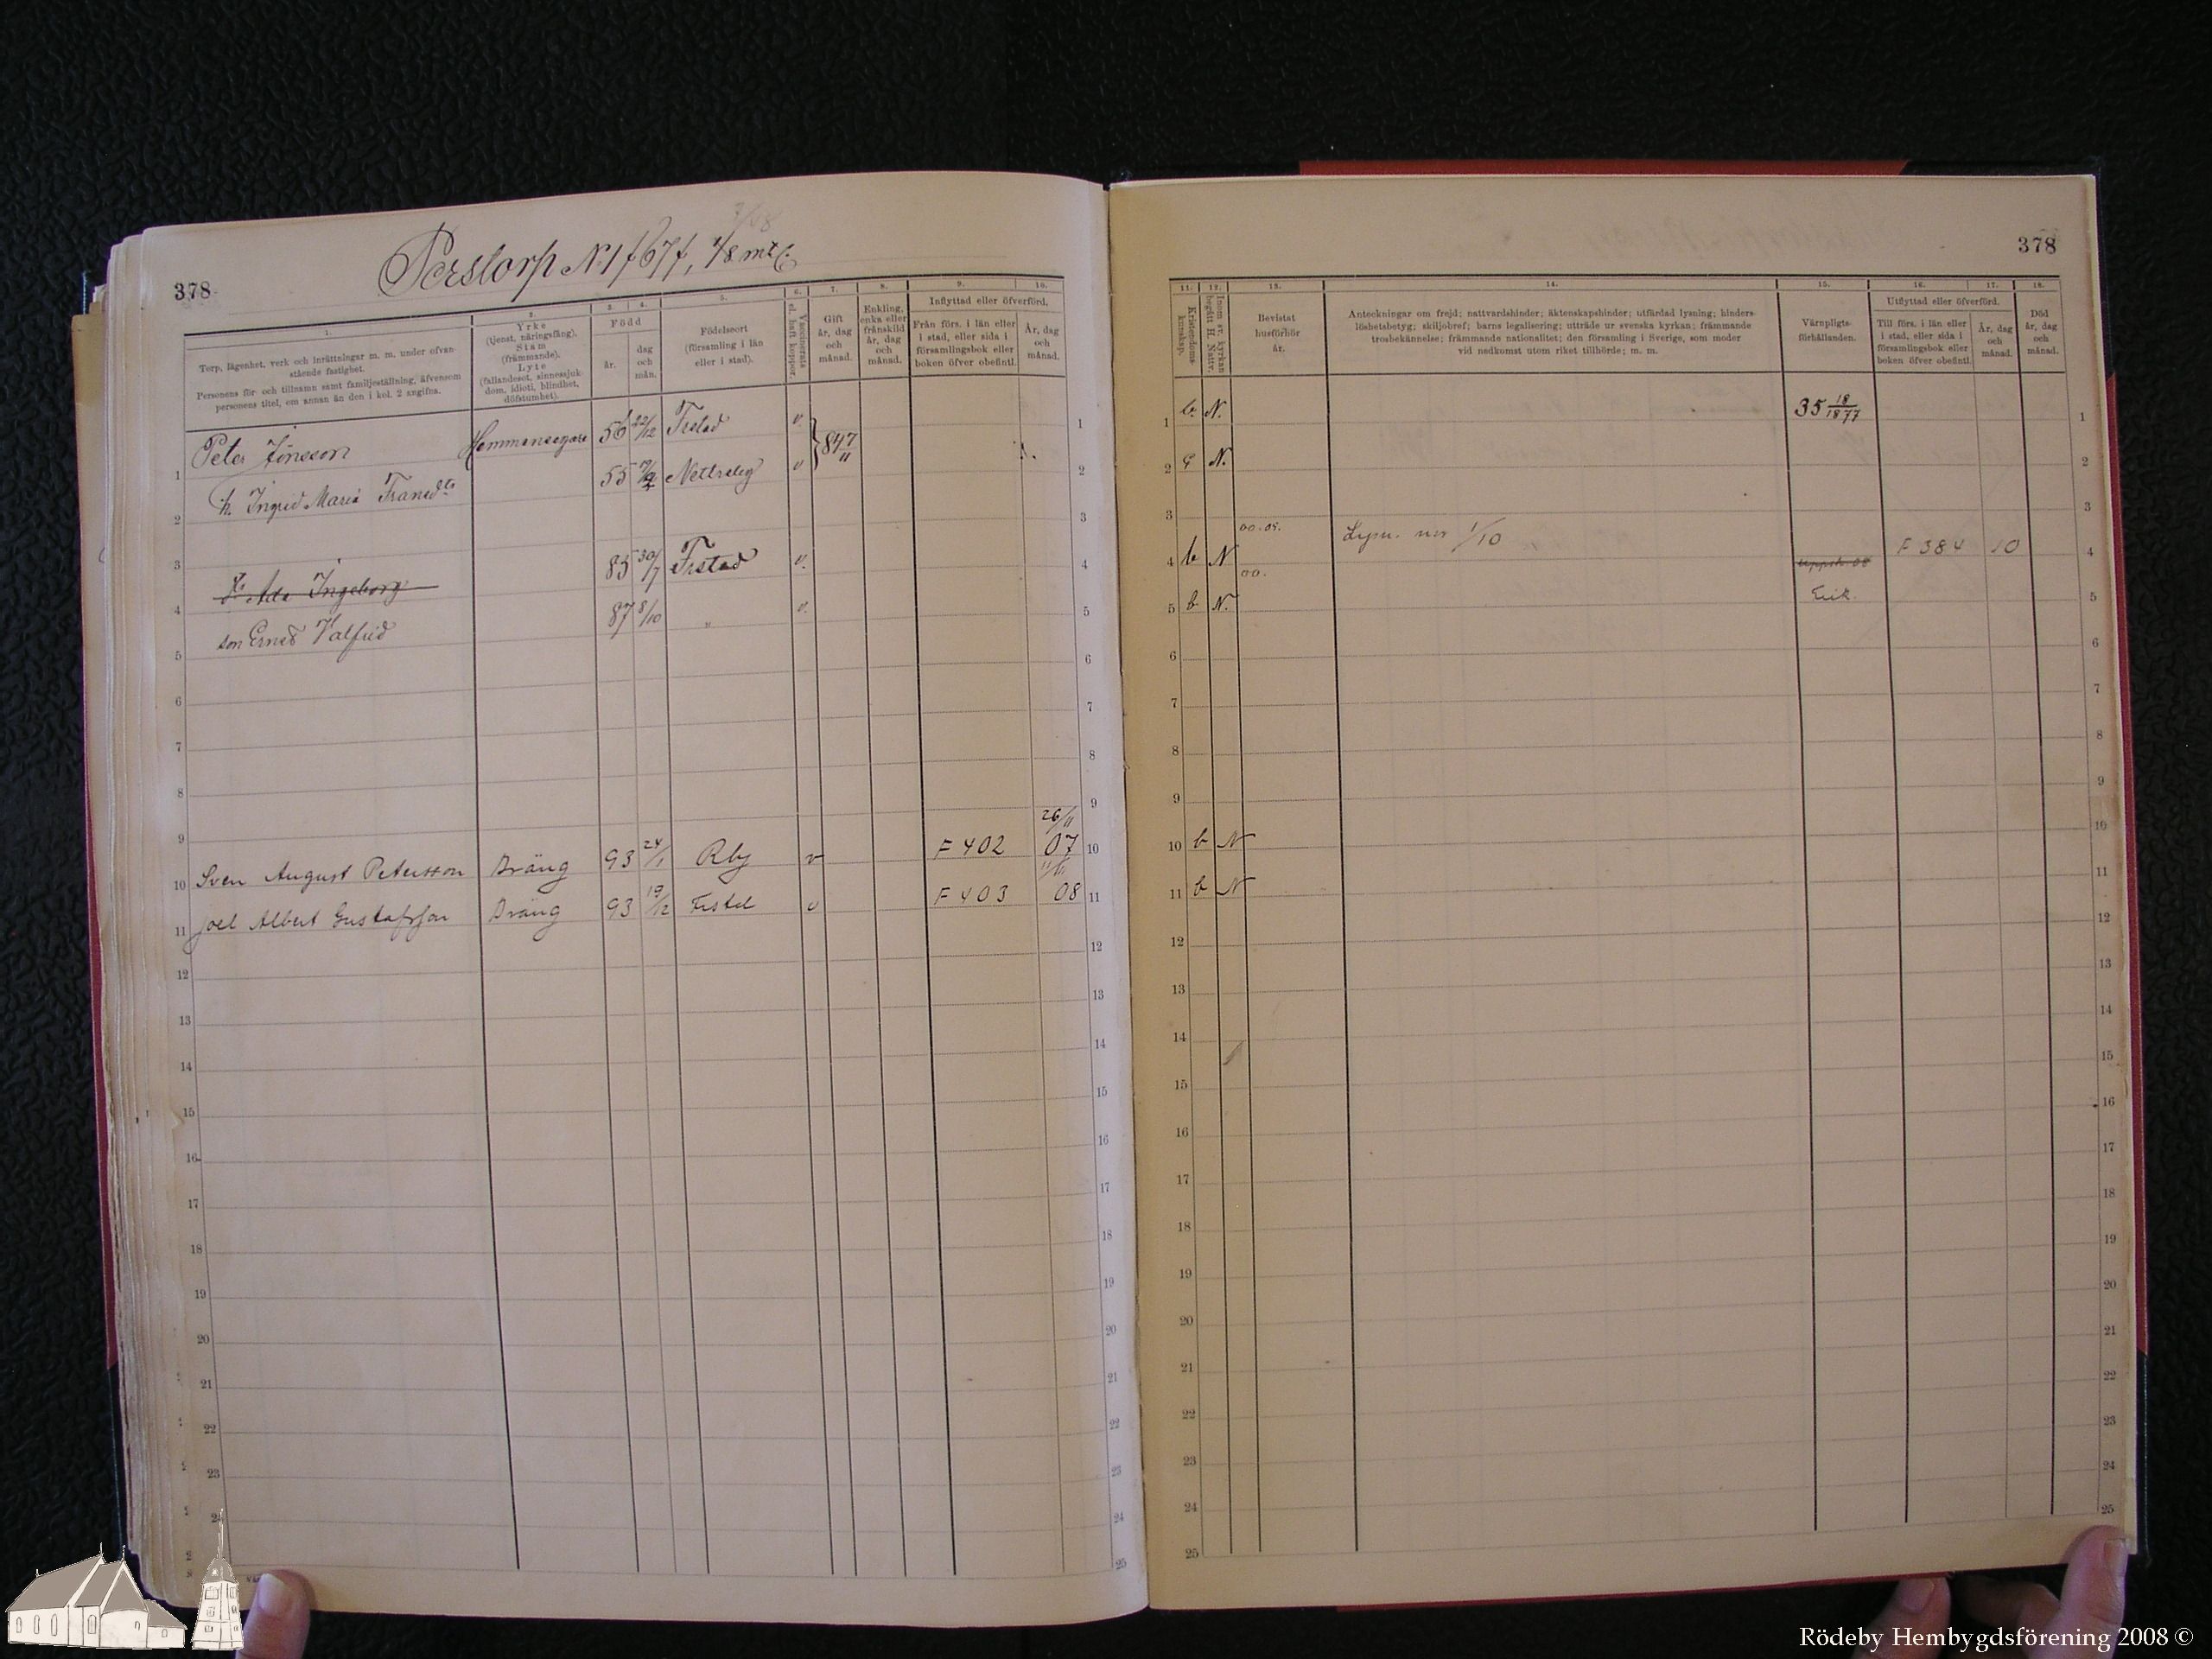 378
Perstorp N:1 f 67 f, 1/8 mtl
1. 2. 3. 4. 5. 6. 7. 8. 9. 10.
Torp, lägenhet, verk och inrättningar m. m. under ofvan-
stående fastighet.
Personens för- och tillnamn samt familjeställning, äfvensom
personens titel, om annan än den i kol. 2 angifna.
Yrke
(tjenst, näringsfång),
Stam
(främmande),
Lyte
(fallandesot, sinnessjuk-
dom, idioti, blindhet,
döfstumhet).
Född
år.
dag
och
mån.
Födelseort
(församling i län
eller i stad).
Vaccinerats
el. haft koppor.
Gift
år, dag
och
månad.
Enkling,
enka eller
frånskild
år, dag
och
månad.
Inflyttad eller öfverförd.
Från förs. i län eller
i stad, eller sida i
församlingsbok eller
boken öfver obefintl.
År, dag
och
månad.
1 Peter Jönsson Hemmansegare 56 22/12 Fustad v 84 7/11 1
2 h. Ingrid Maria Fransd:r 55 Nettraby v 2
3 3
4 Ada Ingeborg 85 30/7 Fustad v. 4
5 son Ernst Valfrid 87 8/10 " v. 5
6 6
7 7
8 8
9 9
10 Sven August Petersson Dräng 93 24/1 Rby v F 402 26/11 07 10
11 Joel Albert Gustafsson Dräng 93 19/12 v F 403 08 11
12 12
13 13
14 14
15 15
16 16
17 17
18 18
19 19
20 20
21 21
22 22
23 23
24 24
25
378
11. 12. 13. 14. 15. 16. 17. 18.
Kristendoms-
kunskap.
Inom sv. kyrkan
begått H. Nattv.
Bevistat
husförhör
år.
Anteckningar om frejd; nattvardshinder; äktenskapshinder; utfärdad lysning; hinders-
löshetsbetyg; skiljobref; barns legalisering; utträde ur svenska kyrkan; främmande
trosbekännelse; främmande nationalitet; den församling i Sverige, som moder
vid nedkomst utom riket tillhörde; m. m.
Värnpligts-
förhållanden.
Utflyttad eller öfverförd.
Till förs. i län eller
i stad, eller sida i
församlingsbok eller
boken öfver obefintl.
År, dag
och
månad.
Död
år, dag
och
månad.
1 b. N. 35 18/1877 1
2 N. 2
3 3
4 b N 00.05. Lysn. 1/10 F 384 10 4
5 b N. 00. 5
6 6
7 7
8 8
9 9
10 b N 10
11 b N 11
12 12
13 13
14 14
15 15
16 16
17 17
18 18
19 19
20 20
21 21
22 22
23 23
24 24
25 25
Rödeby Hembygdsförening 2008 ©